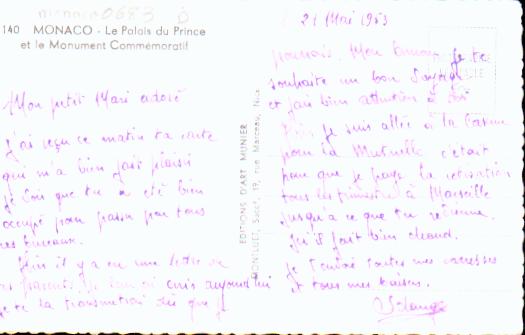 monaco0683
140 MONACO - Le Palais du Prince
et le Monument Commémoratif
Mon petit Mari adoré
J'ai reçu ce matin ta carte
qui m'a bien fait plaisir
je sais que tu a été bien
occupé pour passer par tous
ces bureaux.
Puis il y a eu une lettre de
tes parents. Je
te la transmetrai dès que je
EDITIONS D'ART MUNIER
MONTLUET, Succr, 19, rue Marceau, Nice
21 Mai 1953
pourrais. Mon amour, je te
souhaite un bon
et fais bien attention à toi
Puis je suis allée à la Caisse
pour la Mutuelle c'était
pour que je paye la cotisation
tous les trimestres à Marseille
jusqu'a ce que tu revienne.
Qu'il fait bien chaud.
Je t'envoie toutes mes caresses
et tous mes baisers.
Solange